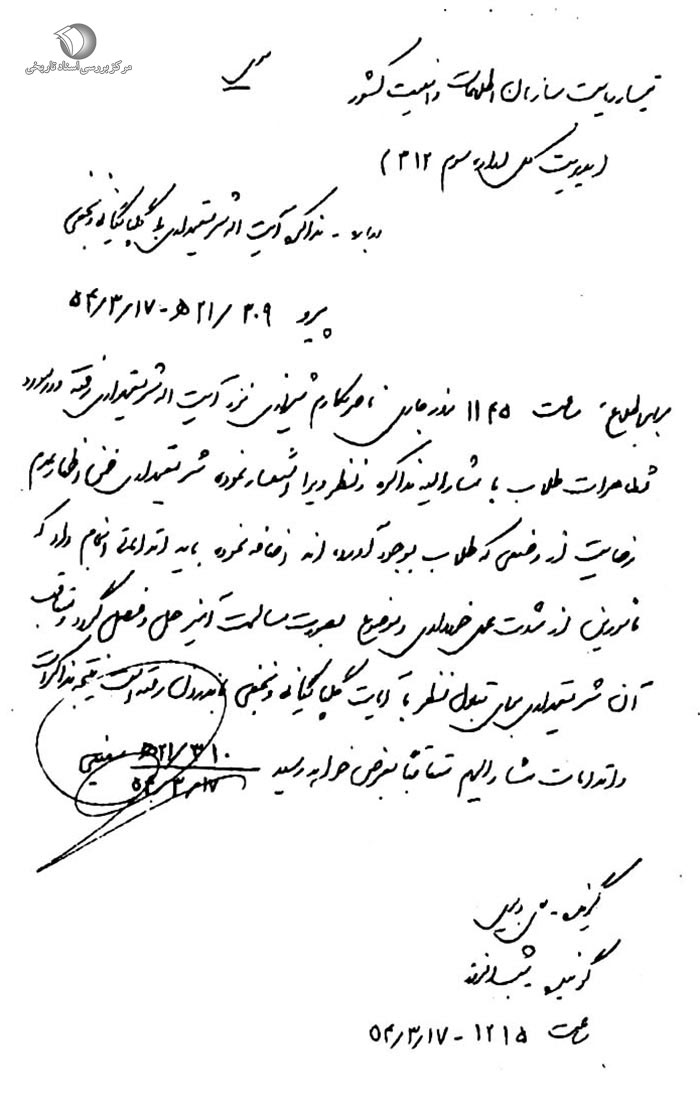 مرکز بررسی اسناد تاریخی
تیمسار ریاست سازمان اطلاعات و امنیت کشور
(مدیریت کل اداره سوم ۳۱۲)
درباره - مذاکره آیت اله شریعتمداری با گلپایگانی و نجفی
پیرو ۳۰۹/ ۲۱ھ - ۵۴/۳/۱۷
برای اطلاع: ساعت ۱۱۴۵ روز جاری ناصر مکارم شیرازی نزد آیت اله شریعتمداری رفته و در مورد
تظاهرات طلاب با مشارالیه مذاکره و نظر ویرا استفسار نموده شریعتمداری ضمن اظهار عدم
رضایت از وضعی که طلاب بوجود آورده اند اضافه نموده باید اقداماتی انجام داد که
مامورین از شدت عمل خودداری و موضوع بصورت مسالمت آمیز حل و فصل گردد متعاقب
آن شریعتمداری برای تبادل نظر با آیات گلپایگانی و نجفی رفته است نتیجه مذاکرات
و اقدامات مشارالیهم متعاقبا بعرض خواهد رسید ۳۱۰/ ۲۱ھ
۵۴/۳/۱۷
گیرنده -
گوینده
ساعت ۱۲۱۵ - ۵۴/۳/۱۷